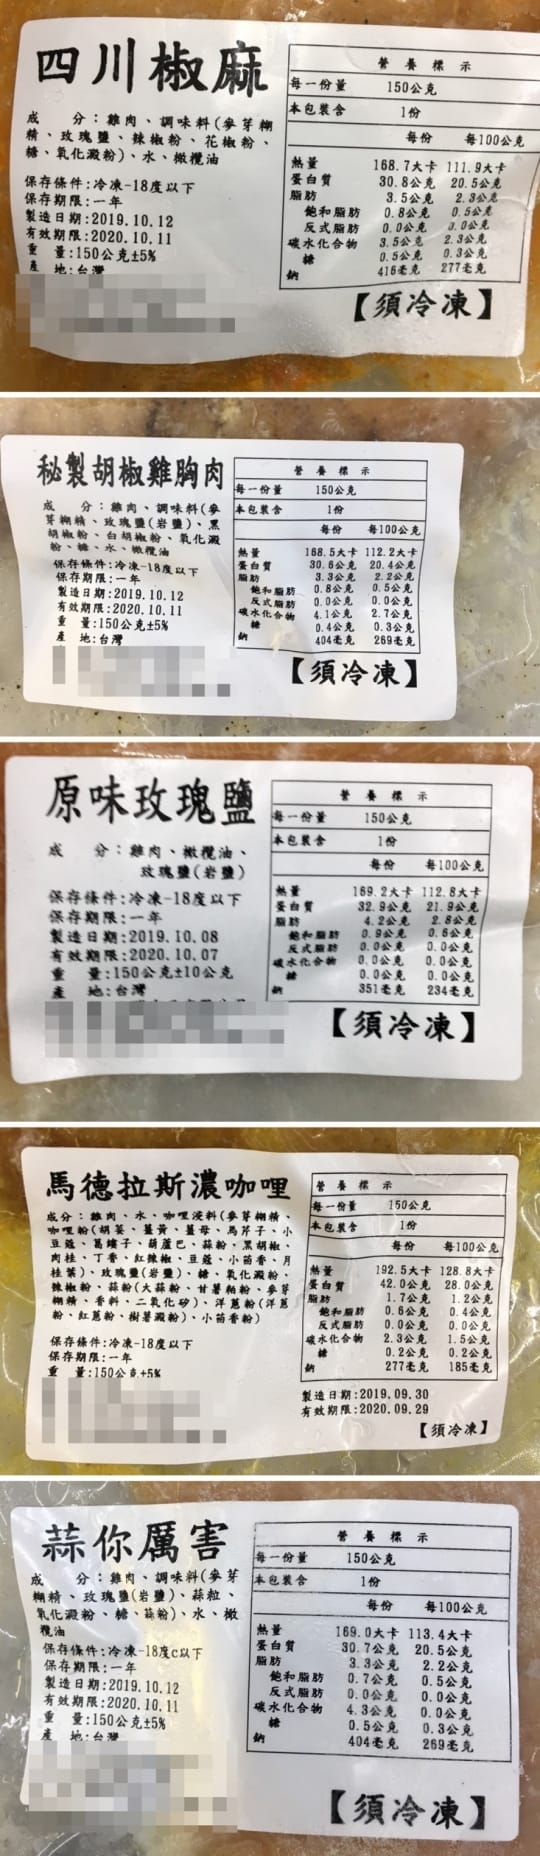 四川椒麻
成 分:雞肉、調味料(麥芽糊
精、玫瑰鹽、辣椒粉、花椒粉、
糖、氧化澱粉)、水、橄欖油
保存條件:冷凍-18度以下
保存期限:一年
製造日期:2019.10.12
有效期限:2020.10.11
重 量:150公克±5%
產 地:台灣
營養標示
每一份量 150公克
本包裝含 1份
每份 每100公克
熱量 168.7大卡 111.9大卡
蛋白質 30.8公克 20.5公克
脂肪 3.5公克 2.3公克
飽和脂肪 0.8公克 0.5公克
反式脂肪 0.0公克 0.0公克
碳水化合物 3.5公克 2.3公克
糖 0.5公克 0.3公克
鈉 416毫克 277毫克
【須冷凍】
秘製胡椒雞胸肉
成 分:雞肉、調味料(麥
芽糊精、玫瑰鹽(岩鹽)、黑
胡椒粉、白胡椒粉、氧化澱
粉、糖、水、橄欖油
保存條件:冷凍-18度以下
保存期限:一年
製造日期:2019.10.12
有效期限:2020.10.11
重 量:150公克±5%
產 地:台灣
營養標示
每一份量 150公克
本包裝含 1份
每份 每100公克
熱量 168.5大卡 112.2大卡
蛋白質 30.6公克 20.4公克
脂肪 3.3公克 2.2公克
飽和脂肪 0.8公克 0.5公克
反式脂肪 0.0公克 0.0公克
碳水化合物 4.1公克 2.7公克
糖 0.4公克 0.3公克
鈉 404毫克 269毫克
【須冷凍】
原味玫瑰鹽
成 分:雞肉、橄欖油、
玫瑰鹽(岩鹽)
保存條件:冷凍-18度以下
保存期限:一年
製造日期:2019.10.08
有效期限:2020.10.07
重 量:150公克±10公克
產 地:台灣
營養標示
每一份量 150公克
本包裝含 1份
每份 每100公克
熱量 169.2大卡 112.8大卡
蛋白質 32.9公克 21.9公克
脂肪 4.2公克 2.8公克
飽和脂肪 0.9公克 0.6公克
反式脂肪 0.0公克 0.0公克
碳水化合物 0.0公克 0.0公克
糖 0.0公克 0.0公克
鈉 351毫克 234毫克
【須冷凍】
馬德拉斯濃咖哩
成分:雞肉、水、咖哩浸料(麥芽糊精、
咖哩粉(胡荽、薑黃、薑母、馬芹子、小
豆蔻、葛縷子、葫蘆巴、蒜粉、黑胡椒、
肉桂、丁香、紅辣椒、豆蔻、小茴香、月
桂葉)、玫瑰鹽(岩鹽)、糖、氧化澱粉、
辣椒粉、蒜粉(大蒜粉、甘薯粕粉、麥芽
糊精、香料、二氧化矽)、洋蔥粉(洋蔥
粉、紅蔥粉、樹薯澱粉)、小茴香粉)
保存條件:冷凍-18度以下
保存期限:一年
重 量:150公克±5%
營養標示
每一份量 150公克
本包裝含 1份
每份 每100公克
熱量 192.5大卡 128.8大卡
蛋白質 42.0公克 28.0公克
脂肪 1.7公克 1.2公克
飽和脂肪 0.6公克 0.4公克
反式脂肪 0.0公克 0.0公克
碳水化合物 2.3公克 1.5公克
糖 0.2公克 0.2公克
鈉 277毫克 185毫克
製造日期:2019.09.30
有效期限:2020.09.29
【須冷凍】
蒜你厲害
成 分:雞肉、調味料(麥芽
糊精、玫瑰鹽(岩鹽)、蒜粒、
氧化澱粉、糖、蒜粉)、水、橄
欖油
保存條件:冷凍-18度c以下
保存期限:一年
製造日期:2019.10.12
有效期限:2020.10.11
重 量:150公克±5%
產 地:台灣
營養標示
每一份量 150公克
本包裝含 1份
每份 每100公克
熱量 169.0大卡 113.4大卡
蛋白質 30.7公克 20.5公克
脂肪 3.3公克 2.2公克
飽和脂肪 0.7公克 0.5公克
反式脂肪 0.0公克 0.0公克
碳水化合物 4.3公克 0.0公克
糖 0.5公克 0.3公克
鈉 404毫克 269毫克
【須冷凍】